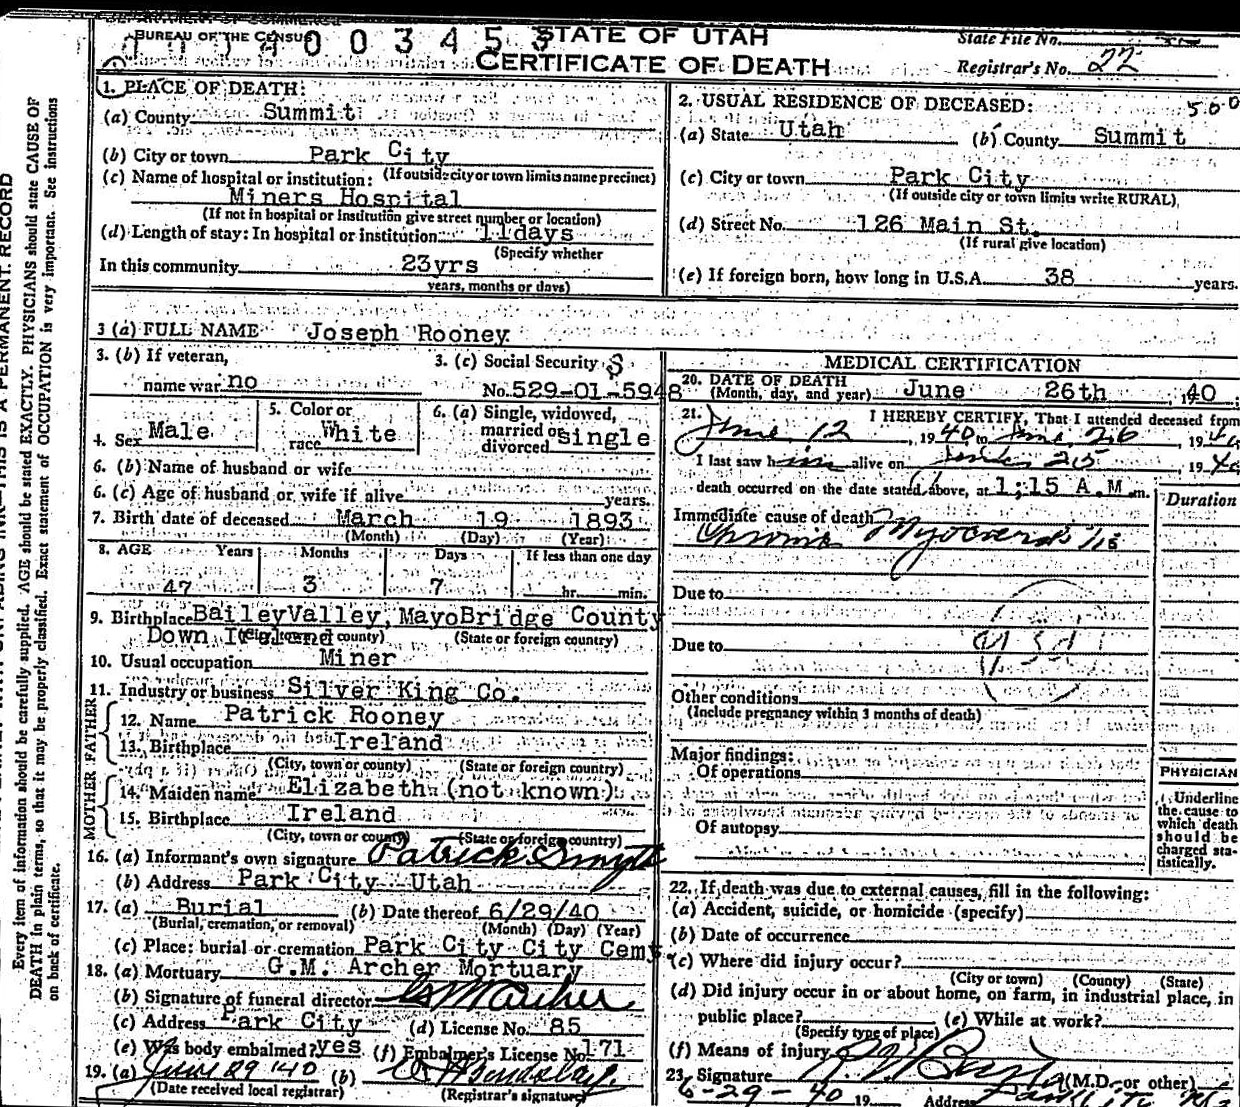 BUREAU OF THE CENSUS
0 0 3 4 5 3
STATE OF UTAH
CERTIFICATE OF DEATH
State File No.
Registrar's No. 22
1. PLACE OF DEATH:
(a) County Summit
(b) City or town Park City
(If outside city or town limits name precinct)
(c) Name of hospital or institution:
Miners Hospital
(If not in hospital or institution give street number or location)
(d) Length of stay: In hospital or institution 11days
(Specify whether
In this community 23yrs
years, months or days)
2. USUAL RESIDENCE OF DECEASED: 500
(a) State Utah (b) County Summit
(c) City or town Park City
(If outside city or town limits write RURAL)
(d) Street No. 126 Main St.
(If rural give location)
(e) If foreign born, how long in U.S.A. 38 years.
3 (a) FULL NAME Joseph Rooney
3. (b) If veteran,
name war no
3. (c) Social Security
No. 529-01-5948
4. Sex Male
5. Color or
race White
6. (a) Single, widowed,
married or
divorced single
6. (b) Name of husband or wife
6. (c) Age of husband or wife if alive years.
7. Birth date of deceased March 19 1893
(Month) (Day) (Year)
8. AGE Years Months Days If less than one day
47 3 7 hr. min.
9. Birthplace BaileyValley, MayoBridge County
Down Ireland
(State or foreign country)
10. Usual occupation Miner
11. Industry or business Silver King Co.
FATHER
12. Name Patrick Rooney
13. Birthplace Ireland
(City, town or county) (State or foreign country)
MOTHER
14. Maiden name Elizabeth (not known)
15. Birthplace Ireland
(City, town or county) (State or foreign country)
16. (a) Informant's own signature Patrick Smyth
(b) Address Park City Utah
17. (a) Burial (b) Date thereof 6/29/40
(Burial, cremation, or removal) (Month) (Day) (Year)
(c) Place: burial or cremation Park City City Cemt.
18. (a) Mortuary G.M. Archer Mortuary
(b) Signature of funeral director GM Archer
(c) Address Park City (d) License No. 85
(e) Was body embalmed? yes (f) Embalmer's License No. 171
19. (a) June 29 '40 (b)
(Date received local registrar) (Registrar's signature)
MEDICAL CERTIFICATION
20. DATE OF DEATH
(Month, day, and year) June 26th, 1940
21. I HEREBY CERTIFY, That I attended deceased from
June 12, 1940 to June 26, 1940
I last saw him alive on June 25, 1940
death occurred on the date stated above, at 1:15 A.M. m.
Duration
Immediate cause of death
Chronic Myocarditis
Due to
Due to
Other conditions
(Include pregnancy within 3 months of death)
Major findings:
Of operations
Of autopsy
PHYSICIAN
Underline
the cause to
which death
should be
charged sta-
tistically.
22. If death was due to external causes, fill in the following:
(a) Accident, suicide, or homicide (specify)
(b) Date of occurrence
(c) Where did injury occur?
(City or town) (County) (State)
(d) Did injury occur in or about home, on farm, in industrial place, in
public place? (e) While at work?
(Specify type of place)
(f) Means of injury
23. Signature (M.D. or other)
6-29-40 19 Address Park City
Every item of information should be carefully supplied. AGE should be stated EXACTLY. PHYSICIANS should state CAUSE OF
DEATH in plain terms, so that it may be properly classified. Exact statement of OCCUPATION is very important. See instructions
on back of certificate.
THIS IS A PERMANENT RECORD